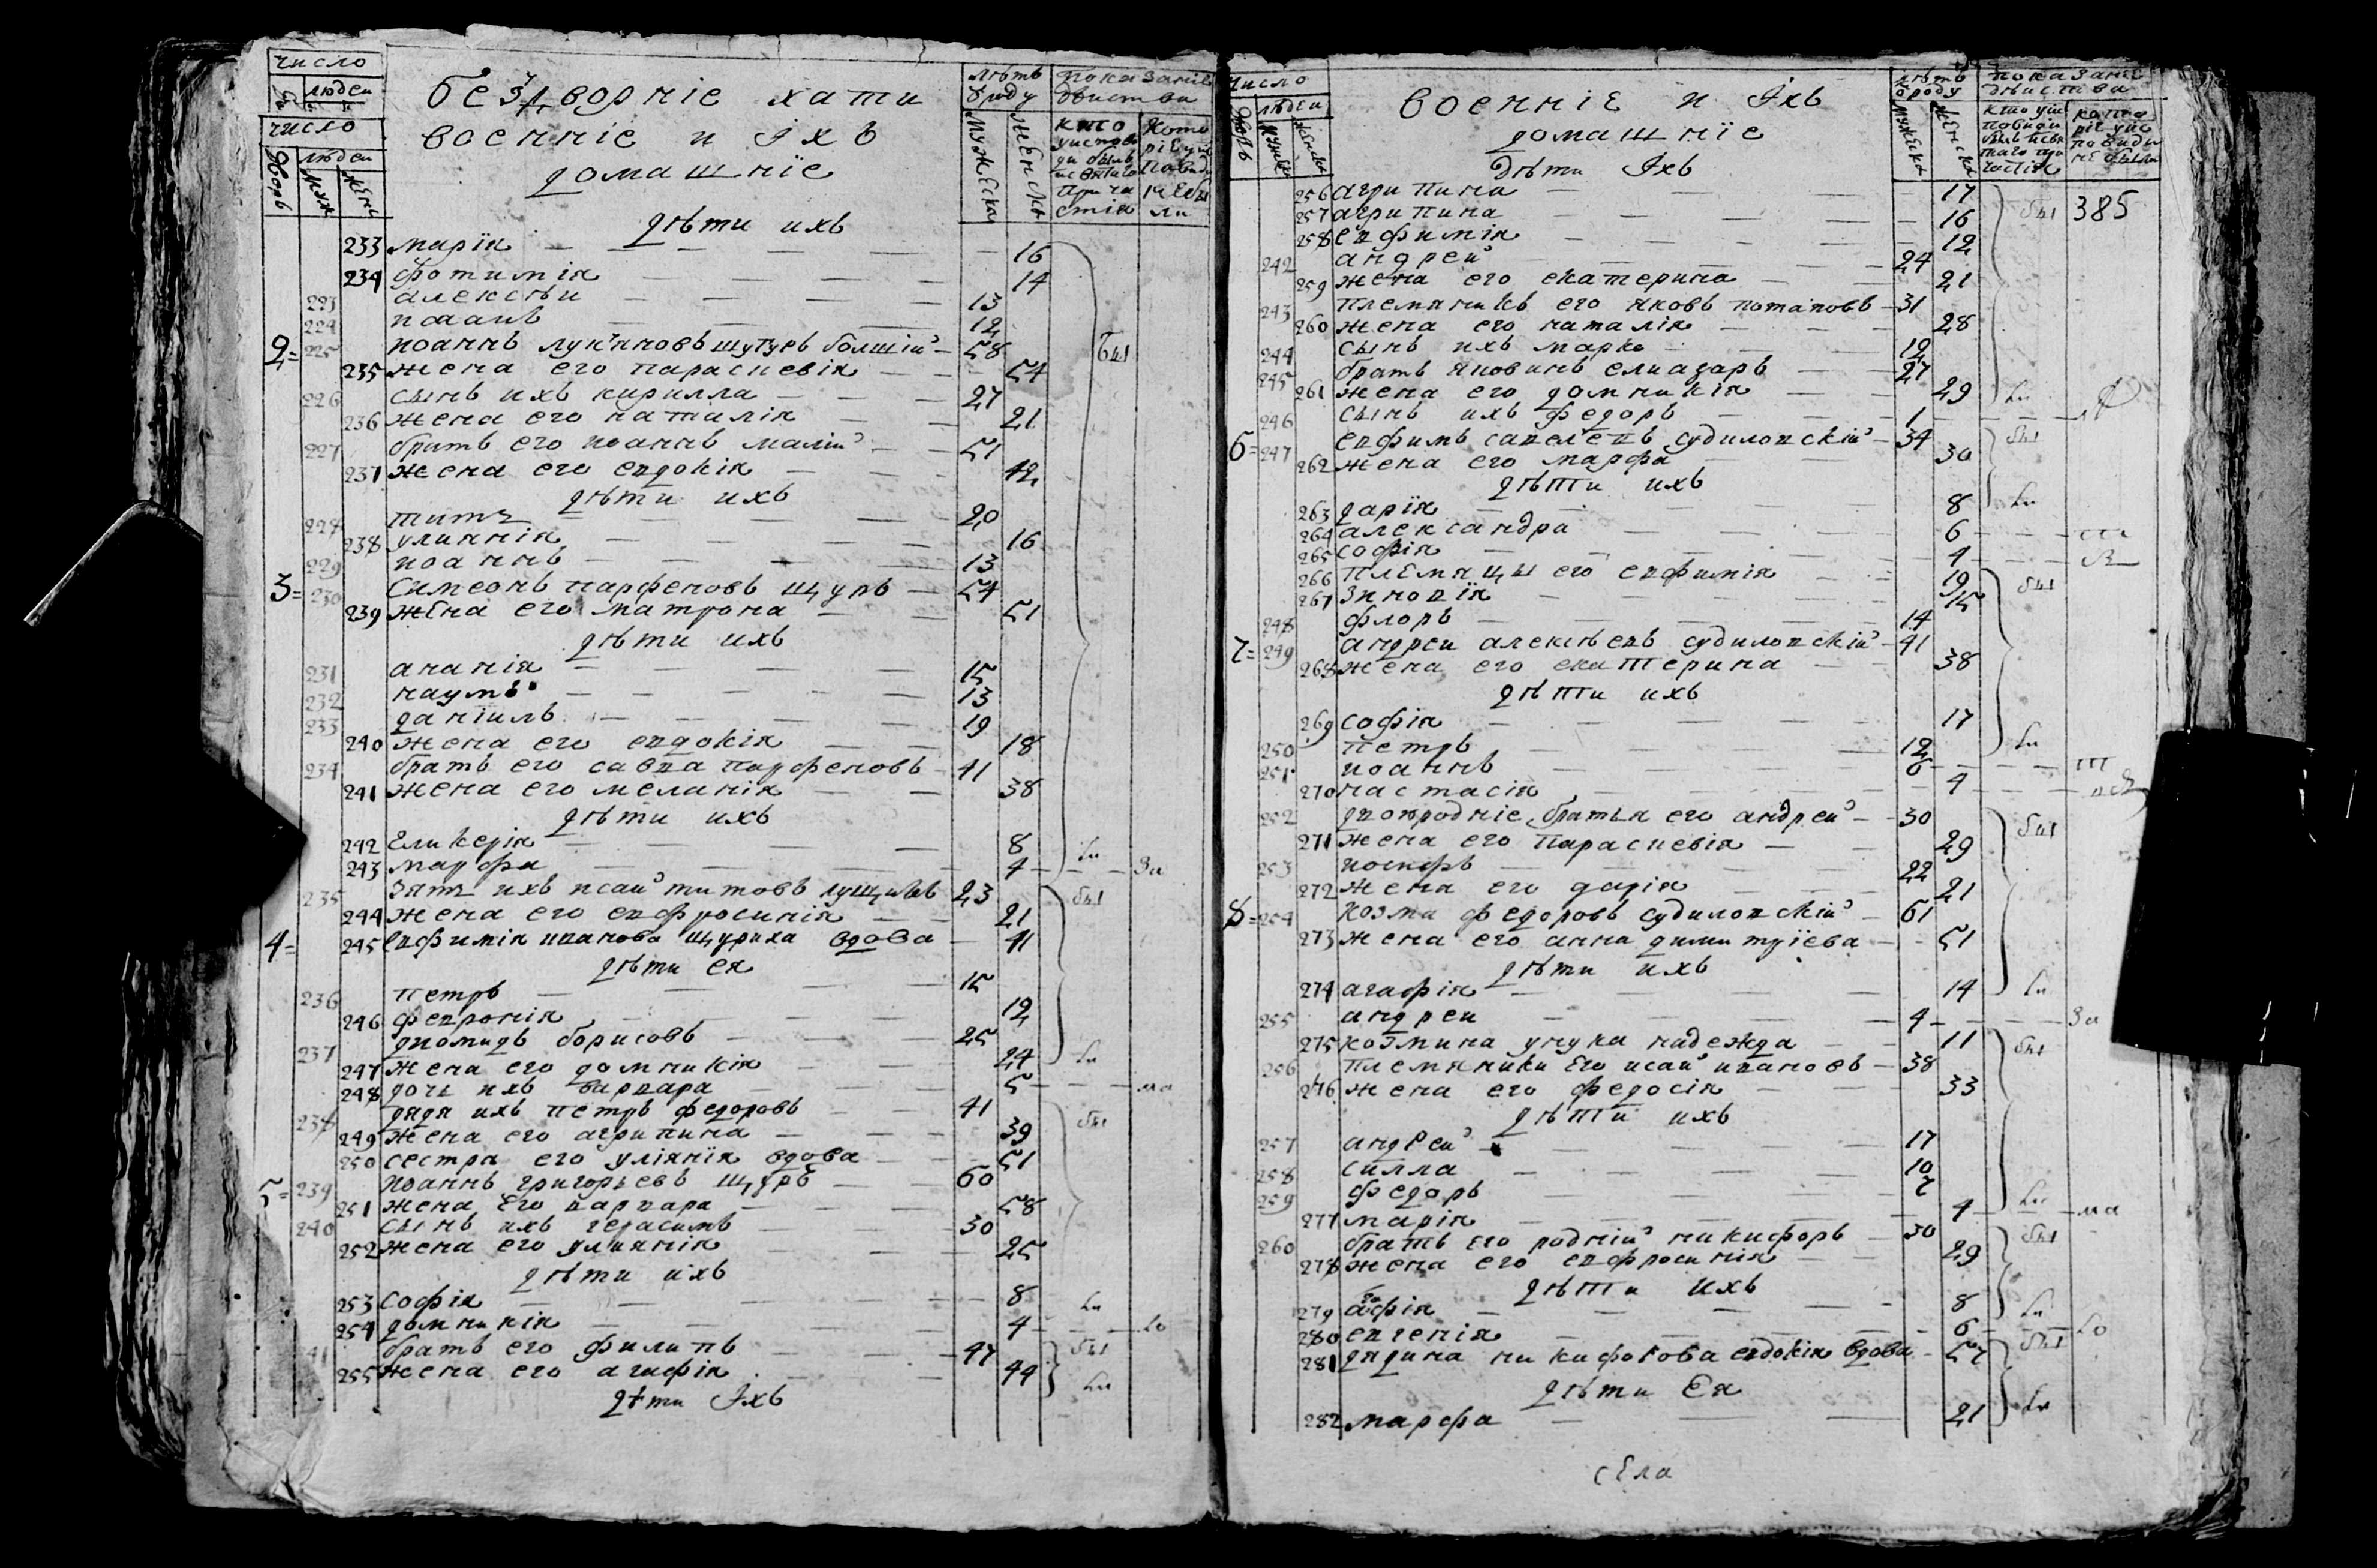 число
людеи
число
дворъ
людеи
муж
жен
бездворніе хати
военніе и Іхъ
домашніе
лѣтъ
ѿроду
мужеска
женска
показаніе
двиства
кто
кото
дѣти ихъ
233 марія 16
234 фотимія 14
223 алексѣи 13
224 иоаннъ 12
2= 225 иоаннъ лукяновъ щупуръ болшій 58 бы
235 жена его параскевія 54
226 сынъ ихъ кирилла 27
236 жена его наталія 21
227 братъ его иоаннъ малій 51
237 жена его евдокія 42
дѣти ихъ
228 титъ 20
238 улиянія 16
229 иоаннъ 13
3= 230 симеонъ парфеновъ щуръ 54
239 жена его матрона 51
дѣти ихъ
231 ананія 15
232 наумъ 13
233 даніилъ 19
240 жена его евдокія 18
234 братъ его савва парфеновъ 41
241 жена его меланія 38
дѣти ихъ
242 гликерія 8 ли
243 марфа 4 за
235 зятъ ихъ исаи титовъ 23 бы
244 жена его евфросинія 21
4= 245 евфимія иванова щуриха вдова 41
дѣти ея
236 петръ 15
246 февронія 12
237 диомидъ борисовъ 25
247 жена его домникія 24 ли
248 дочь ихъ варвара 5 ма
238 дядя ихъ петръ федоровъ 41 бы
249 жена его агрипина 39
250 сестра его уліянія вдова 51
5= 239 иоаннъ григорьевъ щуръ 60
251 жена его варвара 58
240 сынъ ихъ герасимъ 30
252 жена его улиянія 25
дѣти ихъ
253 софія 8 ли
254 домникія 4 ло
241 братъ его филипъ 47 бы
255 жена его агафія 44 ли
дѣти Іхъ
число
дворъ
людеи
мужеска
женска
военніе и Іхъ
домашніе
дѣти Іхъ
лѣтъ
ѿроду
мужеска
женска
показаніе
дѣиства
256 агрипина 17 бы 385
257 агрипина 16
258 евфимія 12
242 андреи 24
259 жена его екатерина 21
243 племяникъ его яковъ потаповъ 31
260 жена его наталія 28
244 сынъ ихъ марко 12
245 братъ яковинъ елиазаръ 27
261 жена его домникія 29 ли
246 сынъ ихъ федоръ 1
6= 247 евфимъ савелевъ судиловскій 34 бы
262 жена его марфа 30
дѣти ихъ
263 дарія 8 ли
264 александра 6
265 софія 4
266 племяцы его евфимія 19 бы
267 зиновія 15
248 флоръ 14
7= 249 андреи алексѣевъ судиловскій 41
268 жена его екатерина 38
дѣти ихъ
269 софія 17
250 петръ 12 ли
251 иоаннъ 6
270 настасія 4
252 двоюродніе братья его андреи 30 бы
271 жена его параскевія 29
253 иосифъ 22
272 жена его дарія 21
8= 254 козма федоровъ судиловскій 61
273 жена его анна димитріева 51
дѣти ихъ
274 агафія 14 ли
255 андреи 4 за
275 козмина унука надежда 11 бы
256 племяники его исаи ивановъ 38
276 жена его федосія 33
дѣти ихъ
257 андреи 17
258 силла 10
259 федоръ 7 ли
277 марія 4 ма
260 братъ его родній никифоръ 30 бы
278 жена его евфросинія 29
дѣти ихъ
279 агафія 8 ли
280 евгенія 6 ло
281 дядина никифорова евдокія вдова 57 бы
дѣти Ея
282 марфа 21 ли
села